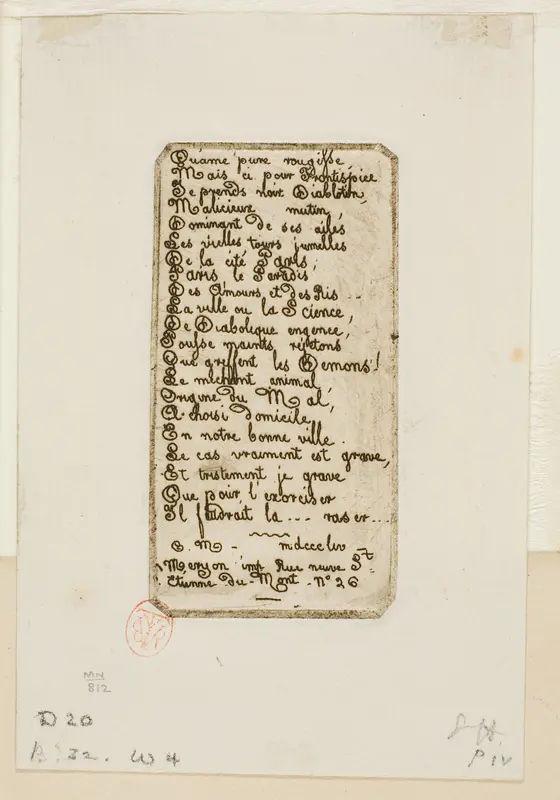 Qu'âme pure rougisse
Mais ci pour Frontispice
Je prends noir Diablotin,
Malicieux mutin,
Dominant de ses ailes
Les vieilles tours jumelles
De la cité Paris,
Paris le Paradis
Des Amours et des Ris...
La ville ou la Science,
De Diabolique engence,
Pousse maints rejetons
Que griffent les Demons!
Le méchant animal
Origine du Mal,
A choisi domicile
En notre bonne ville.
Le cas vraiment est grave,
Et tristement je grave
Que pour l'exorciser
Il faudrait la... raser...
C. M - mdcccliv
Meryon imp Rue neuve St.
Etienne du Mont. No 26
MN
812
D 20
B. 32. W 4
P IV